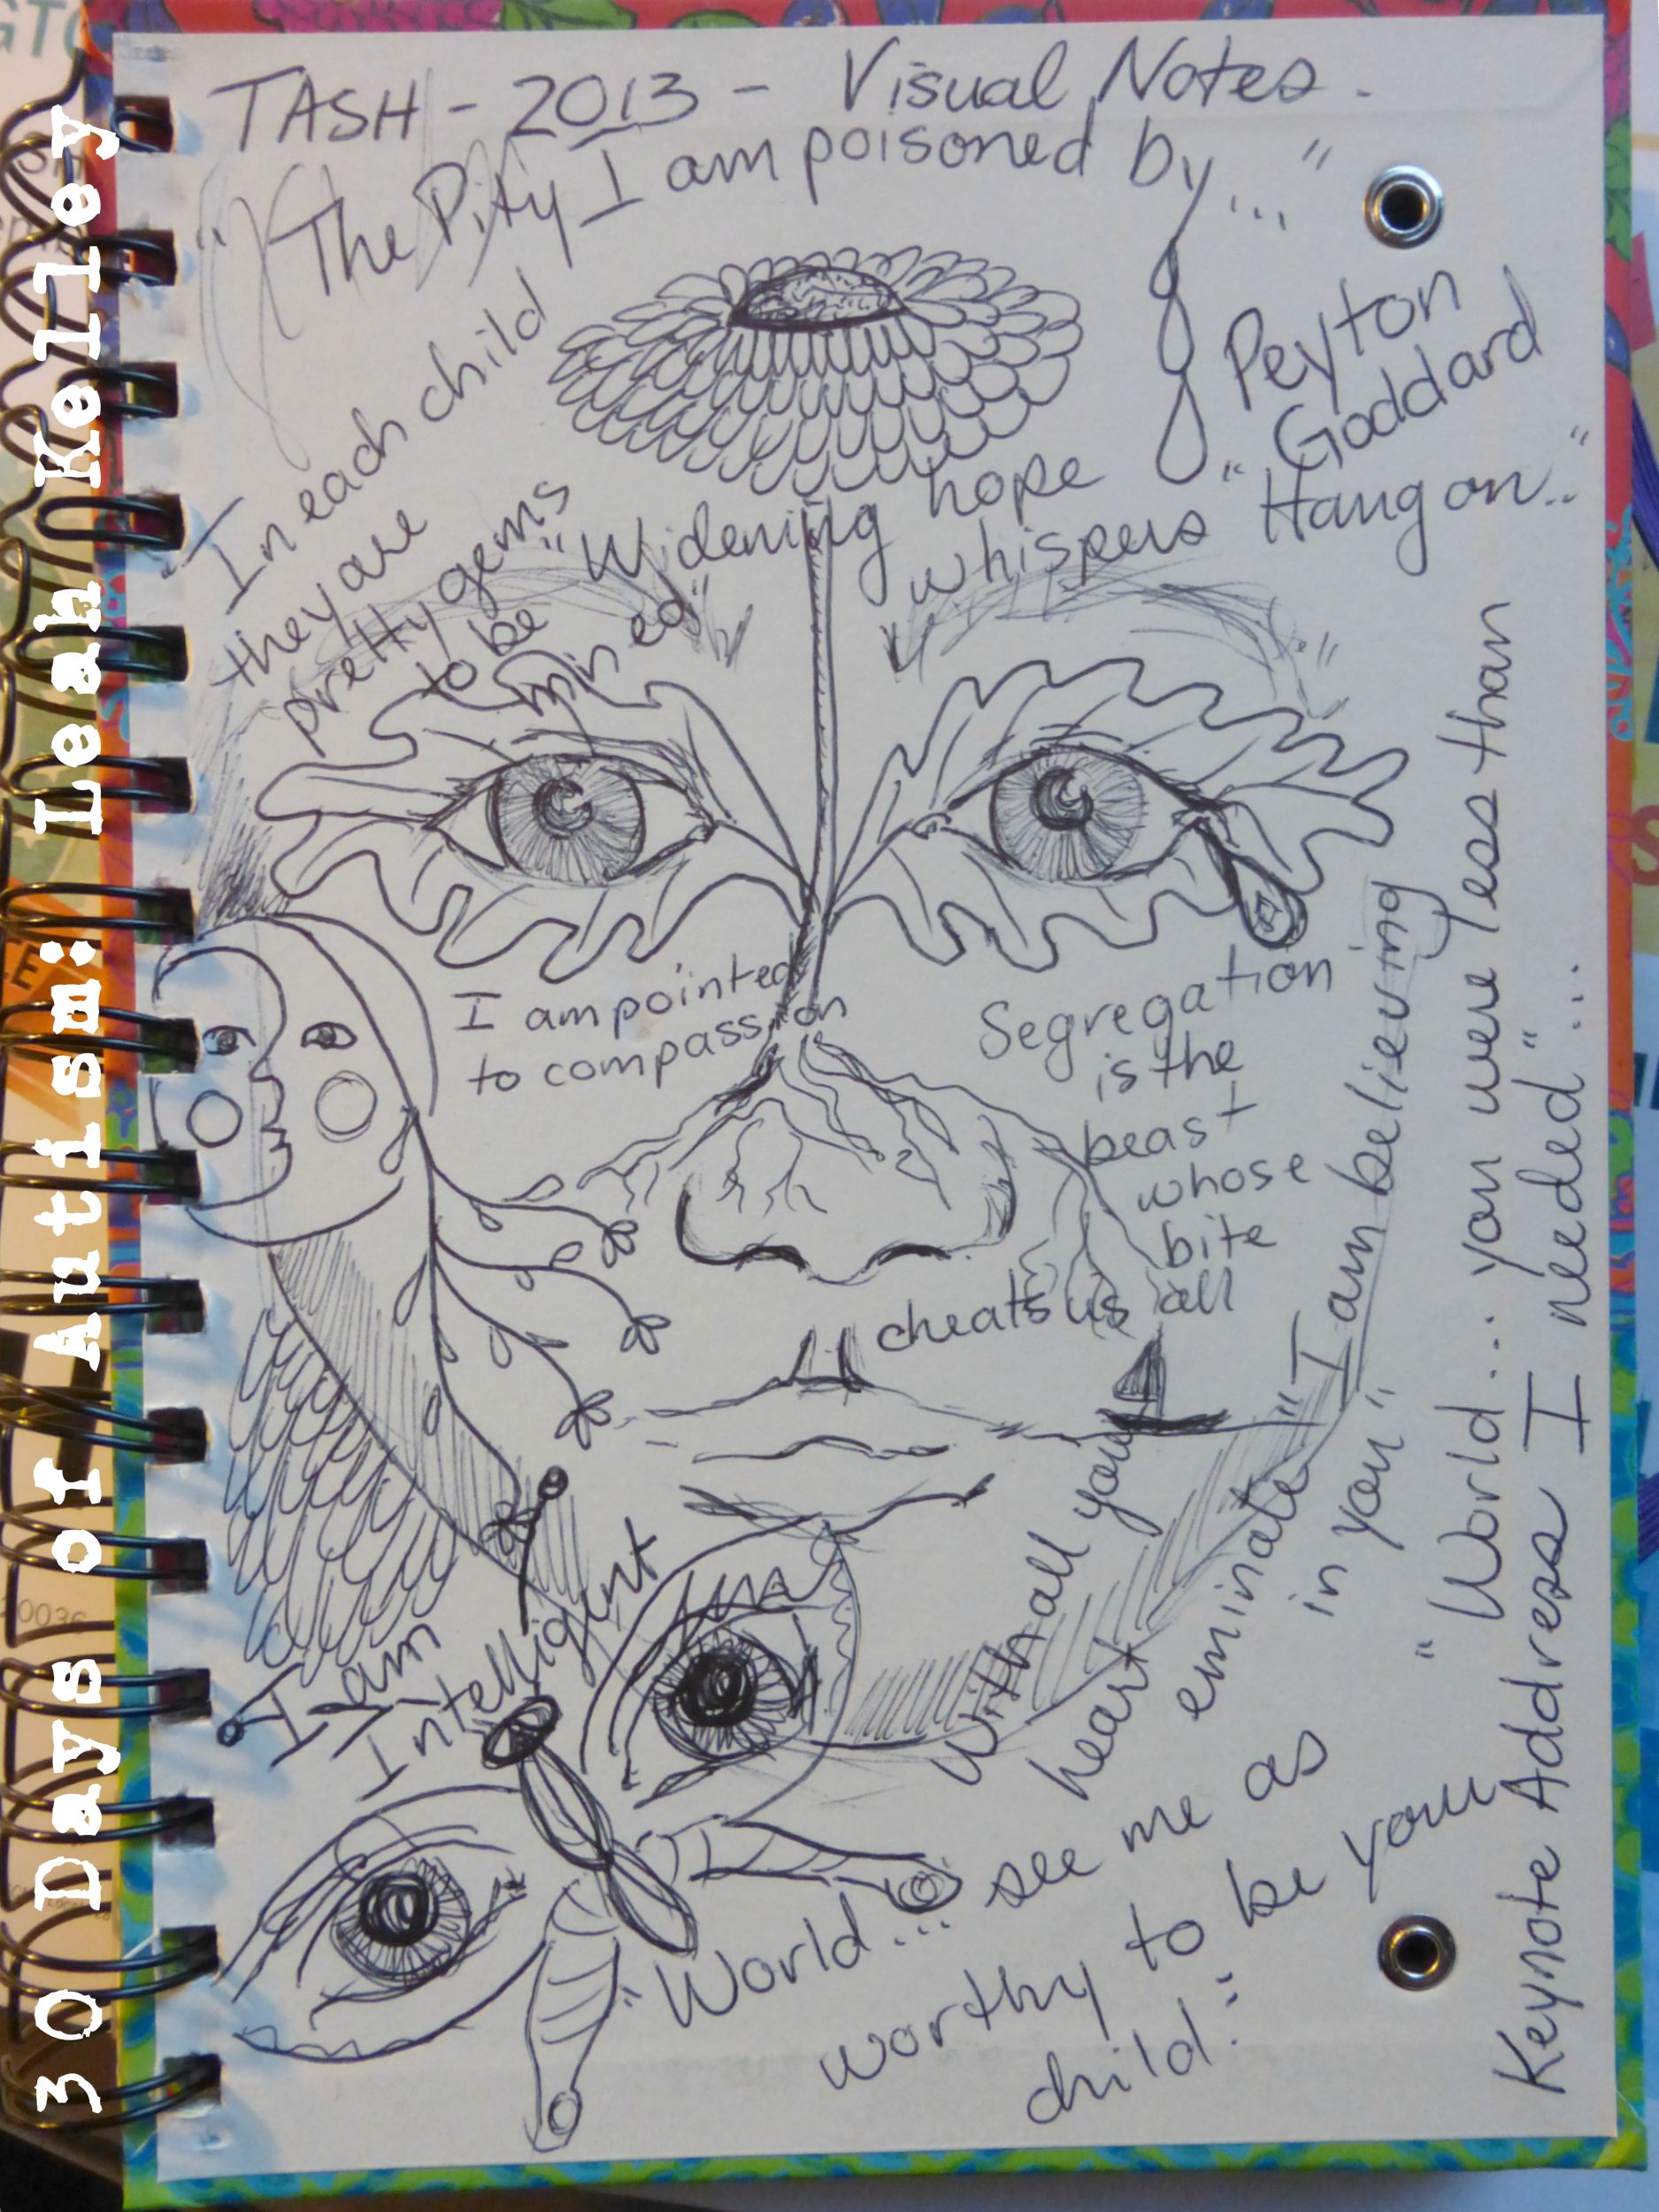 30 Days of Autism: Leah Kelley
TASH - 2013 - Visual Notes.
"The Pity I am poisoned by..."
Peyton
Goddard
In each child
they are
pretty gems
to be
mined"
"Widening hope
whispers "Hang on.."
I am pointed
to compassion
Segregation
is the
beast
whose
bite
cheats us all
I am
Intelligent
With all your
heart
eminate
"I am believing
in you"
"World... you were less than
I needed"...
Keynote Address
"World... see me as
worthy to be your
child."
20036